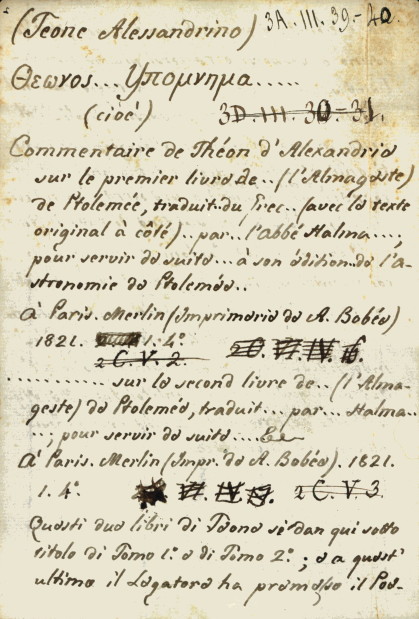 (Teone Alessandrino) 3A. III. 39-40.
Θεωνος... Υπομνημα.....
(cioé.) 3D. III. 30-31.
Commentaire de Théon d'Alexandrie
sur le premier livre de.. (l'Almageste)
de Ptolemée, traduit du Grec.. (avec le texte
original à côté).. par.. l'abbé Halma...;
pour servir de suite... à son édition de l'a-
stronomie de Ptolemée..
à Paris. Merlin (Imprimerie de A. Bobée)
1821. 1. 4°
2 C. V. 2.
............ sur le second livre de.. (l'Alma-
geste) de Ptolemée, traduit... par... Halma..
..; pour servir de suite.... &c
à Paris. Merlin (Impr. de A. Bobée). 1821.
1. 4° 2 C. V. 3
Questi due libri di Teone si dan qui sotto
titolo di Tomo 1° e di Tomo 2°; e a quest'
ultimo il Legatore ha premesso il Pos-